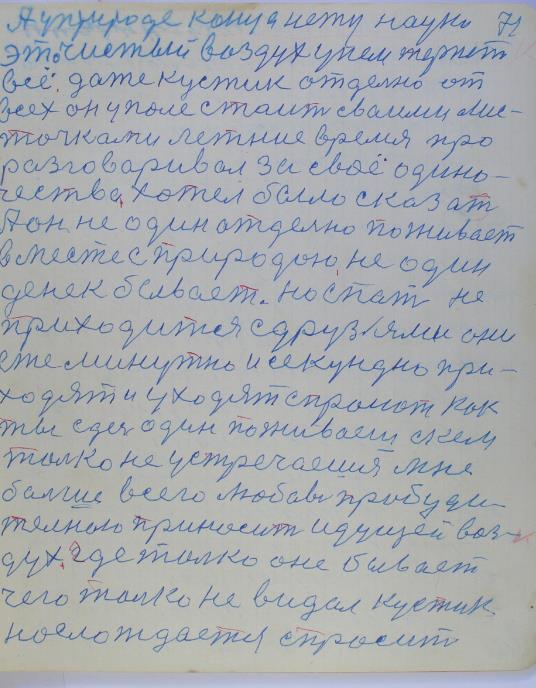 А уприроде конца нету науки 71
это чистый воздух унем терпет
всё. даже кустик отделно от
всех он уполе стаит сваими лис-
точками летние время про
разговаривал за своё одино-
чества, хотел было сказат
Аон не один отделно поживает
вместе с природою, не один
денек бывает. но спат не
приходится сдрузями они
еже минутно и секундно при-
ходят и уходят спросит как
ты сдея один поживаеш скем
толко не устречаешя мне
балше всего любави пробуди-
телною приносит идущей воз-
дух, где толко оне бывает
чего толко не видал кустик
нослождается спросит